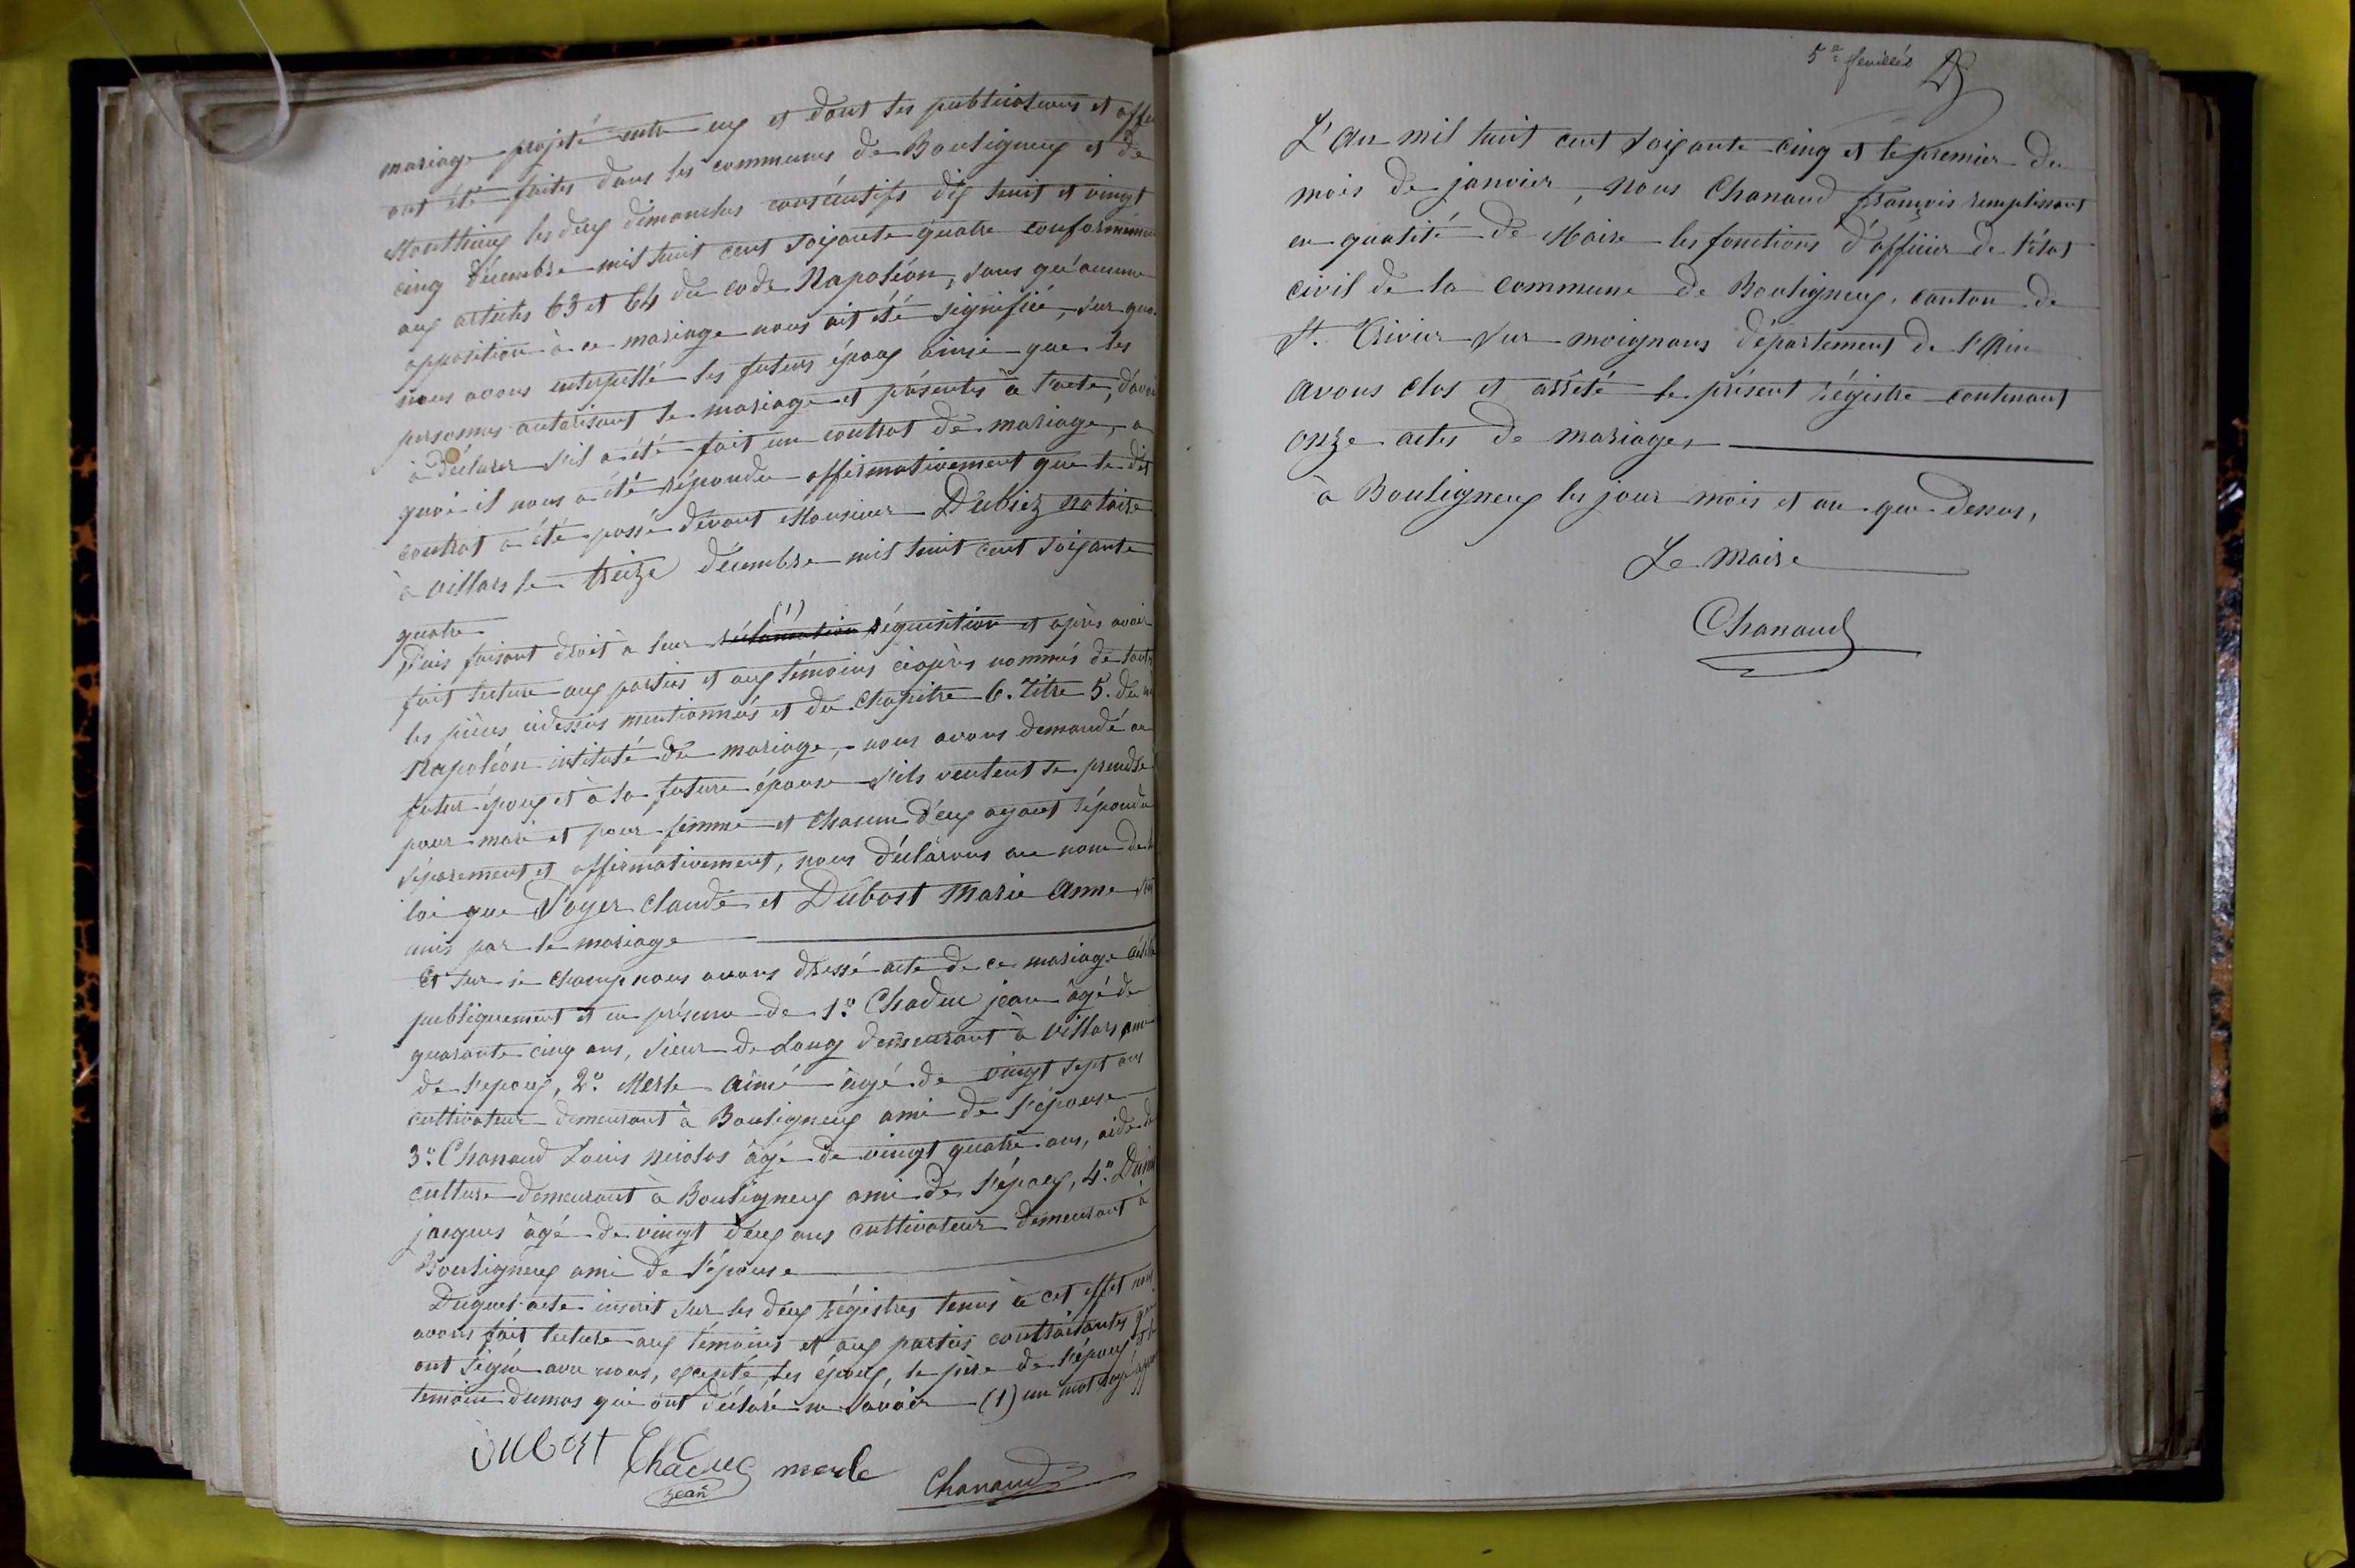 mariage projeté entre eux et dont les publications et affi
ont été faites dans les communes de Bouligneux et de
Monthieux les deux dimanches consécutifs dix huit et vingt
cinq décembre mil huit cent soixante quatre conformémen
aux articles 63 et 64 du code Napoléon, sans qu'aucune
opposition à ce mariage nous ait été signifié, sur quoi
nous avons interpellé les futurs époux ainsi que les
personnes autorisant le mariage et présentes à l'acte, d'avoir
à déclarer s'il a été fait un contrat de mariage, a
quoi il nous a été répondu affirmativement que le dit
contrat a été passé devant Monsieur Dubiez notaire
à villars le treize décembre mil huit cent soixante
quatre
Puis faisant droit à leur réclamation (1) réquisition et après avoir
fait lecture aux parties et aux témoins ciaprès nommés de toutes
les pièces cidessus mentionnées et du Chapitre 6. Titre 5. du
Napoléon intitulé du mariage, nous avons demandé au
futur époux et à la future épouse s'ils veulent se prendre
pour mari et pour femme et chacun d'eux ayant répondu
séparement et affirmativement, nous déclarons au nom de
loi que Poyer Claude et Dubost Marie Anne sont
unis par le mariage
Et sur le champ nous avons dressé acte de ce mariage célébré
publiquement et en présence de 1° Chaduc jean âgé de
quarante cinq ans, sieur de Long demeurant à villars, ami
de l'epoux, 2° Merle Aimé âgé de vingt sept ans
cultivateur demeurant à Bouligneux ami de l'épouse
3° Chanaud Louis nicolas âgé de vingt quatre ans, aide de
culture demeurant à Bouligneux ami de l'époux, 4°
jacques âgé de vingt deux ans cultivateur demeurant à
Bouligneux ami de l'épouse
Duquel acte inscrit sur les deux régistres tenus à cet effet nous
avons fait lecture aux témoins et aux parties contraitantes qui
ont signé avec nous, excepté les époux, le père de l'époux et le
témoin dumas qui ont déclaré ne savoir (1) un mot rayé
Dubost Chaduc merle Chanaud
jean
5e feuillet
L'an mil huit cent soixante cinq et le premier du
mois de janvier, nous Chanaud françois remplissant
en qualité de Maire les fonctions d'officier de l'état
civil de la commune de Bouligneux, canton de
St. Trivier sur moignans département de l'Ain
avons clos et arrêté le présent régistre contenant
onze actes de mariages
à Bouligneux les jour mois et an que dessus,
Le Maire
Chanaud